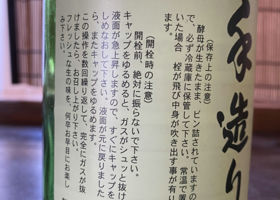 手造り
（保存上の注意）
酵母が生きたまま、ビン詰されいますの
で、必ず冷蔵庫に保管して下さい。常温で置
いた場合　栓が飛び中身が吹き出す事が有り
（開栓時の注意）
開栓前、絶対に振らないで下さい。
キャップをゆるめると、ガスがシュッと抜け
液面が急上昇しますので、すぐキャップをも
しめなおして下さい。液面が元に戻りました
ら、またキャップをゆるめます。
この操作を数回繰り返して、完全にガスが抜
けましたら、お召し上がり下さい。
フレッシュな生の味を、何卒お早目にお楽し